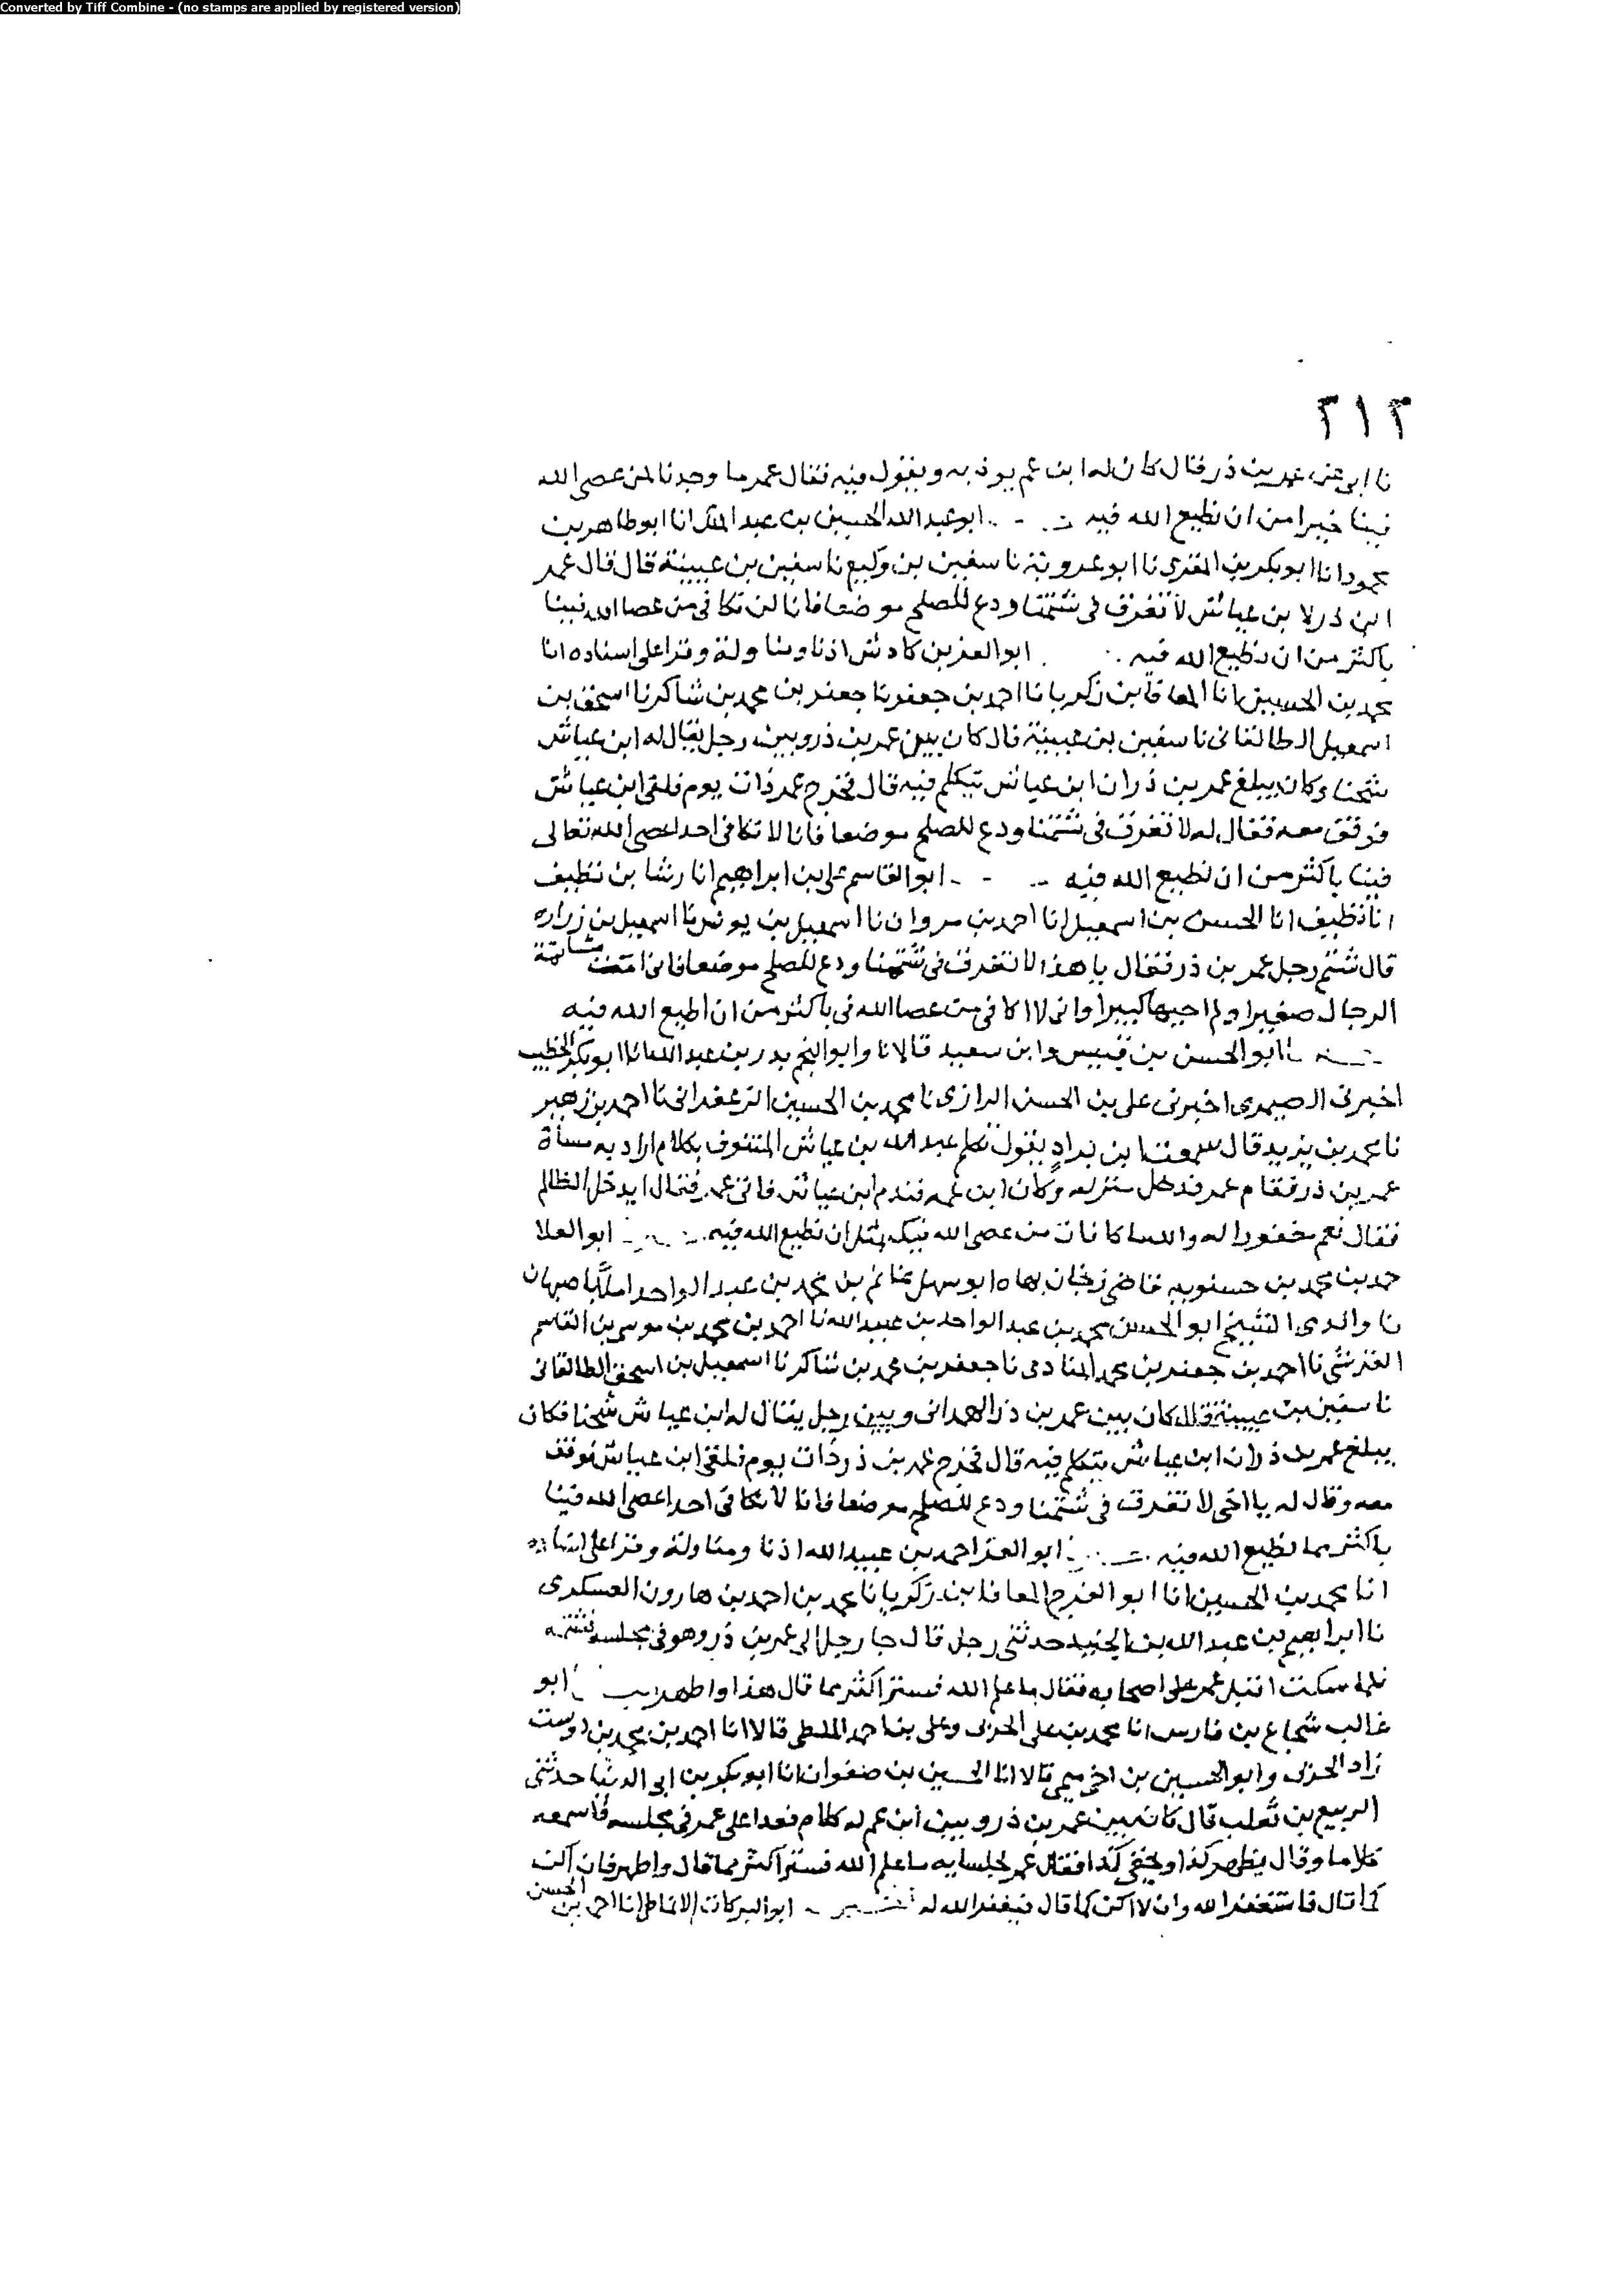 Converted by Tiff Combine - (no stamps are applied by registered version)
٣١٣
نا ابي عن عمر بن ذر قال كان له ابن عم يوذيه ويقول فيه فقال عمر ما وجدنا لمن عصى الله
فينا خيرا من ان نطيع الله فيه ابو عبد الله الحسين بن عبد الملك انا ابو طاهر بن
محمود انا ابو بكر بن المقرى نا ابو عروبة نا سفين بن وكيع نا سفين بن عيينة قال قال عمر
ابن ذر لا بن عياش لا تغرق في شتمنا ودع للصلح موضعا فانا لن نكافي من عصا الله فينا
باكثر من ان نطيع الله فيه ابو العز بن كادش اذنا ومناولة وقرا على اسناده انا
محمد بن الحسين انا المعافا بن زكريا نا احمد بن جعفر نا جعفر بن محمد بن شاكر نا اسحق بن
اسمعيل الطالقاني نا سفين بن عيينة قال كان بين عمر بن ذر وبين رجل يقال له ابن عياش
شحنا وكان يبلغ عمر بن ذر ان ابن عياش يتكلم فيه قال فخرج عمر ذات يوم فلقى ابن عياش
فوقف معه فقال له لا تغرق في شتمنا ودع للصلح موضعا فانا لا نكافي احدا عصى الله تعالى
فينا باكثر من ان نطيع الله فيه ابو القاسم علي بن ابراهيم انا رشا بن نظيف
انا نظيف انا الحسن بن اسمعيل انا احمد بن مروان نا اسمعيل بن يونس نا اسمعيل بن زراره
قال شتم رجل عمر بن ذر فقال يا هذا لا تغرق في شتمنا ودع للصلح موضعا فاني امت مشاتمة
الرجال صغيرا ولم احيها كبيرا واني لا اكافي من عصا الله في باكثر من ان اطيع الله فيه
ابو الحسن بن قبيس وابن سعيد قالا نا وابو النجم بدر بن عبد الله انا ابو بكر الخطيب
اخبرني الصيمرى اخبرني علي بن الحسن الرازى نا محمد بن الحسين الزعفراني نا احمد بن زهير
نا محمد بن يزيد قال سمعت ابن براد يقول تكلم عبد الله بن عياش المنتوف بكلام اراد به مساة
عمر بن ذر فقام عمر فدخل منزله وكان ابن عمه فندم ابن عياش فاتى عمر فقال ايدخل الظالم
فقال نعم مغفورا له والله ما كافات من عصى الله فيك بمثل ان نطيع الله فيه ابو العلا
حمد بن محمد بن حسنويه قاضي زنجان بها ابو سهل غانم بن محمد بن عبد الواحد املا باصبهان
نا والدى الشيخ ابو الحسن محمد بن عبد الواحد بن عبيد الله نا احمد بن محمد بن موسى بن القاسم
القرشي نا احمد بن جعفر بن محمد المنادى نا جعفر بن محمد بن شاكر نا اسمعيل بن اسحق الطالقاني
نا سفين بن عيينة قال كان بين عمر بن ذر الهمداني وبين رجل يقال له ابن عياش شحنا فكان
يبلغ عمر بن ذر ان ابن عياش يتكلم فيه قال فخرج عمر بن ذر ذات يوم فلقى ابن عياش فوقف
معه وقال له يا اخى لا تغرق في شتمنا ودع للصلح موضعا فانا لا نكافى احدا عصى الله فينا
باكثر مما نطيع الله فيه ابو العز احمد بن عبيد الله اذنا ومناولة وقرا على اسناده
انا محمد بن الحسين انا ابو الفرج المعافا بن زكريا نا محمد بن احمد بن هارون العسكرى
نا ابراهيم بن عبد الله بن الجنيد حدثني رجل قال جا رجل الى عمر بن ذر وهو في مجلسه فشتمه
فلما سكت اقبل عمر على اصحابه فقال ما علم الله فستر اكثر مما قال هذا واظهر ابو
غالب شجاع بن فارس انا محمد بن علي الحربي وعلي بن احمد الملطى قالا انا احمد بن محمد بن دوست
زاد الحربي وابو الحسين بن اخي ميمي قالا انا الحسين بن صفوان انا ابو بكر بن ابي الدنيا حدثنى
الربيع بن ثعلب قال كان بين عمر بن ذر وبين ابن عم له كلام فعدا على عمر في مجلسه فاسمعه
كلاما وقال يظهر كذا ويخفي كذا فقال عمر لجلسايه ما علم الله فستر اكثر مما قال واظهر فان اكن
كما قال فاستغفر الله وان لا اكن كما قال فيغفر الله له ابو البركات الانماطي انا احمد بن الحسن